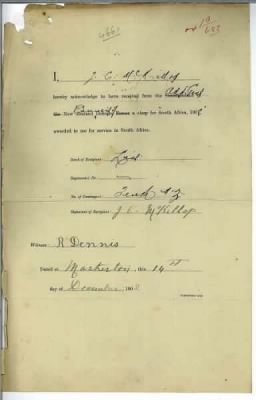 4660
I, J. C. McKillop
hereby acknowledge to have received from the
the New Zealand a clasp for South Africa, 190
awarded to me for service in South Africa.
Rank of Recipient
Regimental No. —
No. of Contingent Tenth N Z
Signature of Recipient J C McKillop
Witness R Dennis
Dated at Masterton, this 14th
day of December 190